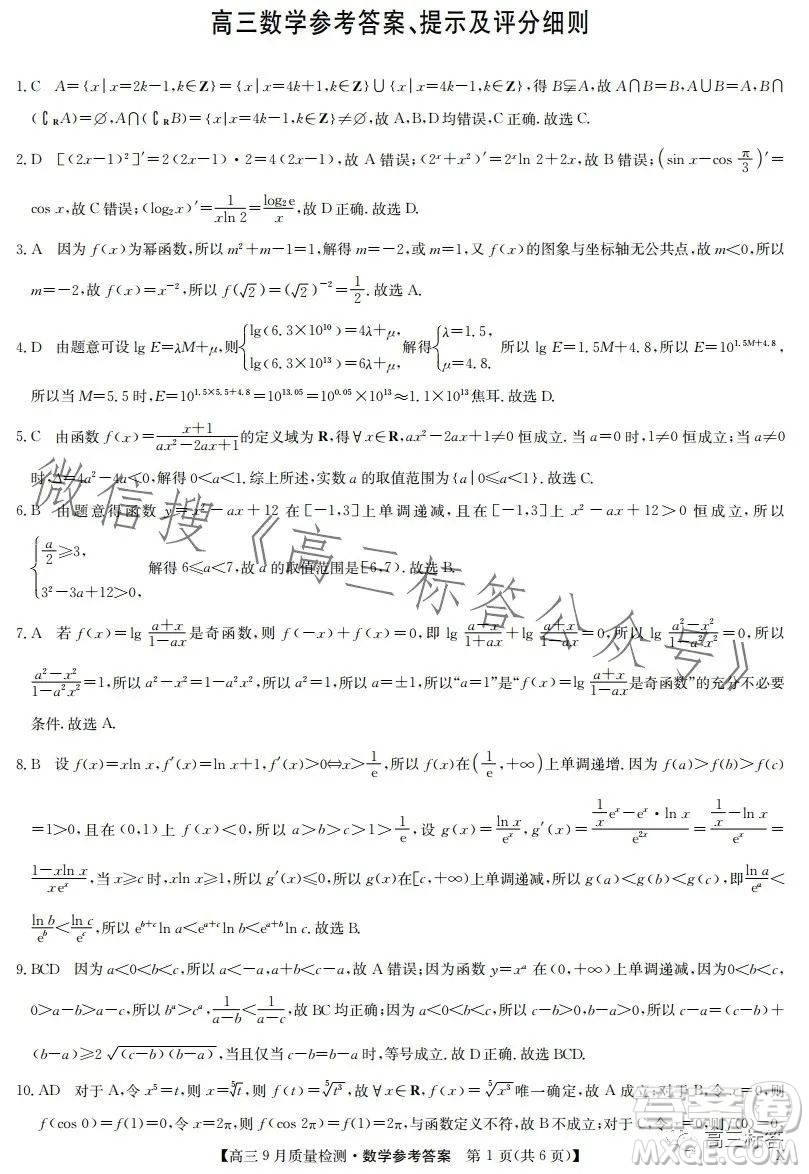 高三数学参考答案、提示及评分细则
1. C　A={x|x=2k-1,k∈Z}={x|x=4k+1,k∈Z}∪{x|x=4k-1,k∈Z},得 B⫋A,故 A∩B=B,A∪B=A,B∩
(∁RA)=∅,A∩(∁RB)={x|x=4k-1,k∈Z}≠∅,故 A,B,D均错误,C正确.故选C.
2. D　[(2x-1)²]′=2(2x-1)·2=4(2x-1),故 A 错误;(2ˣ+x²)′=2ˣln 2+2x,故 B 错误;(sin x-cos π/3)′=
cos x,故 C 错误;(log₂x)′=1/(xln 2)=log₂e/x,故 D 正确.故选 D.
3. A　因为 f(x)为幂函数,所以 m²+m-1=1,解得 m=-2,或 m=1,又 f(x)的图象与坐标轴无公共点,故 m<0,所以
m=-2,故 f(x)=x⁻²,所以 f(√2)=(√2)⁻²=1/2.故选 A.
4. D　由题意可设 lg E=λM+μ,则{lg(6.3×10¹⁰)=4λ+μ, lg(6.3×10¹³)=6λ+μ,解得{λ=1.5, μ=4.8, 所以 lg E=1.5M+4.8,所以 E=10^(1.5M+4.8),
所以当 M=5.5 时,E=10^(1.5×5.5+4.8)=10^13.05=10^0.05×10¹³≈1.1×10¹³焦耳.故选 D.
5. C　由函数 f(x)=(x+1)/(ax²-2ax+1)的定义域为 R,得∀x∈R,ax²-2ax+1≠0 恒成立.当 a=0 时,1≠0 恒成立;当 a≠0
时,Δ=4a²-4a<0,解得 0<a<1.综上所述,实数 a 的取值范围为{a|0≤a<1}.故选 C.
6. B　由题意得函数 y=x²-ax+12 在[-1,3]上单调递减,且在[-1,3]上 x²-ax+12>0 恒成立,所以
{a/2≥3, 3²-3a+12>0, 解得 6≤a<7,故 a 的取值范围是[6,7).故选 B.
7. A　若 f(x)=lg (a+x)/(1-ax)是奇函数,则 f(-x)+f(x)=0,即 lg (a-x)/(1+ax)+lg (a+x)/(1-ax)=0,所以 lg (a²-x²)/(1-a²x²)=0,所以
(a²-x²)/(1-a²x²)=1,所以 a²-x²=1-a²x²,所以 a²=1,所以 a=±1,所以“a=1”是“f(x)=lg (a+x)/(1-ax)是奇函数”的充分不必要
条件.故选 A.
8. B　设 f(x)=xln x,f′(x)=ln x+1,f′(x)>0⇔x>1/e,所以 f(x)在(1/e,+∞)上单调递增.因为 f(a)>f(b)>f(c)
=1>0,且在(0,1)上 f(x)<0,所以 a>b>c>1>1/e,设 g(x)=ln x/eˣ,g′(x)=(1/x eˣ-eˣ·ln x)/e²ˣ=(1/x-ln x)/eˣ=
(1-xln x)/(xeˣ),当 x≥c 时,xln x≥1,所以 g′(x)≤0,所以 g(x)在[c,+∞)上单调递减,所以 g(a)<g(b)<g(c),即ln a/eᵃ<
ln b/eᵇ<ln c/eᶜ,所以 eᵇ⁺ᶜln a<eᵃ⁺ᶜln b<eᵃ⁺ᵇln c.故选 B.
9. BCD　因为 a<0<b<c,所以-a>0,-a+b<c-a,故 A 错误;因为函数 y=xᵃ 在(0,+∞)上单调递减,因为 0<b<c,
0>a-b>a-c,所以 bᵃ>cᵃ,1/(a-b)<1/(a-c),故 BC 均正确;因为 a<0<b<c,所以 c-b>0,b-a>0,所以 c-a=(c-b)+
(b-a)≥2√((c-b)(b-a)),当且仅当 c-b=b-a 时,等号成立.故 D 正确.故选 BCD.
10. AD　对于 A,令 x⁵=t,则 x=⁵√t,则 f(t)=⁵√t³,故∀x∈R,f(x)=⁵√x³唯一确定,故 A 成立;对于 B,令 x=0,则
f(cos 0)=f(1)=0,令 x=2π,则 f(cos 2π)=f(1)=2π,与函数定义不符,故 B 不成立;对于 C,令 x=0,则 f(0)=0,
【高三 9 月质量检测·数学参考答案　第 1 页(共 6 页)】
微信搜《高三标答公众号》
高三标答